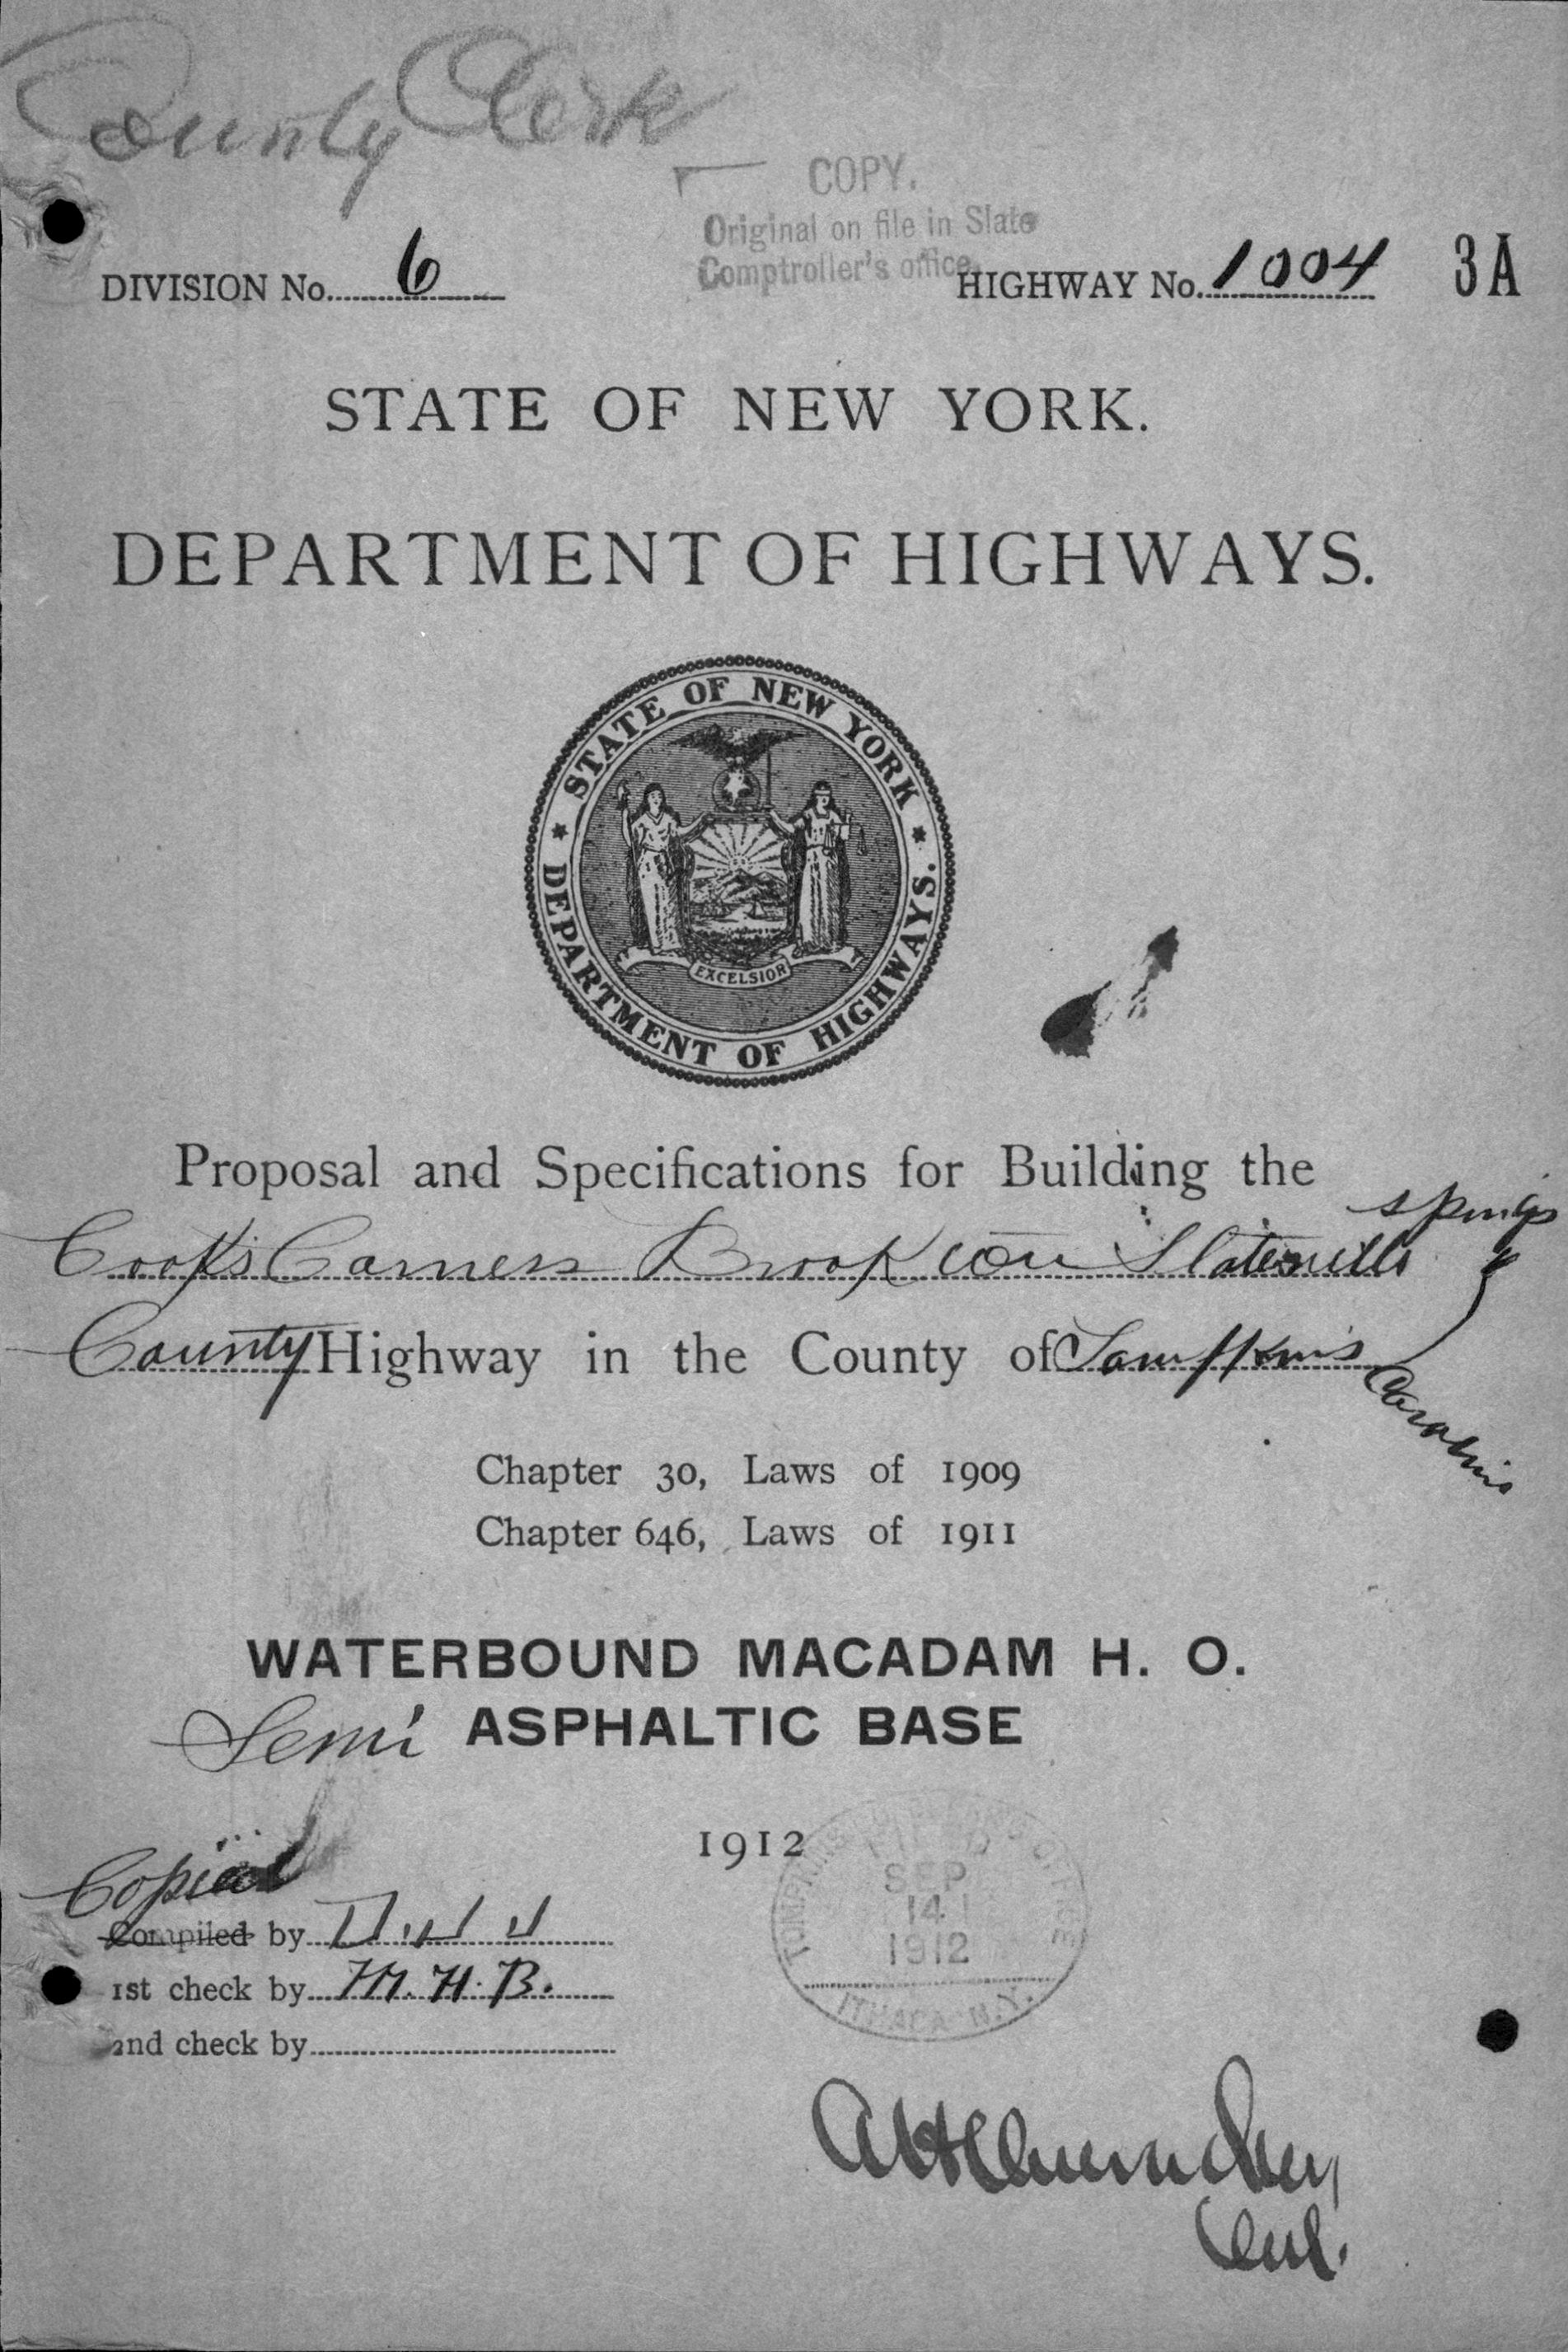 County Clerk
COPY.
Original on file in State
Comptroller's office.
DIVISION No. 6 HIGHWAY No. 1004 3A
STATE OF NEW YORK.
DEPARTMENT OF HIGHWAYS.
STATE OF NEW YORK
DEPARTMENT OF HIGHWAYS.
EXCELSIOR
Proposal and Specifications for Building the
Springs
Cooks Corners Brookton Slaterville
County Highway in the County of Tompkins
Chapter 30, Laws of 1909
Chapter 646, Laws of 1911
WATERBOUND MACADAM H. O.
Semi ASPHALTIC BASE
1912
Copied
Compiled by
1st check by M. H. B.
2nd check by
TOMPKINS OFFICE
SEP
14
1912
ITHACA N.Y.